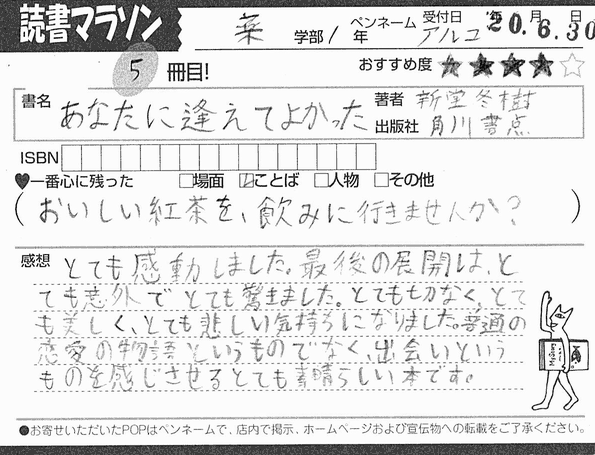 読書マラソン
薬 学部/ 年 ペンネーム アルユ 受付日 年 月 日 '20.6.30
5 冊目!
おすすめ度 ★★★★☆
書名 あなたに逢えてよかった
著者 新堂冬樹
出版社 角川書点
ISBN
♥一番心に残った □場面 ☑ことば □人物 □その他
(おいしい紅茶を、飲みに行きませんか?)
感想 とても感動しました。最後の展開は、と
ても意外でとても驚きました。とても切なく、とて
も美しく、とても悲しい気持ちになりました。普通の
恋愛の物語というものでなく、出会いという
ものを感じさせるとても素晴らしい本です。
●お寄せいただいたPOPはペンネームで、店内で掲示、ホームページおよび宣伝物への転載をご了承ください。